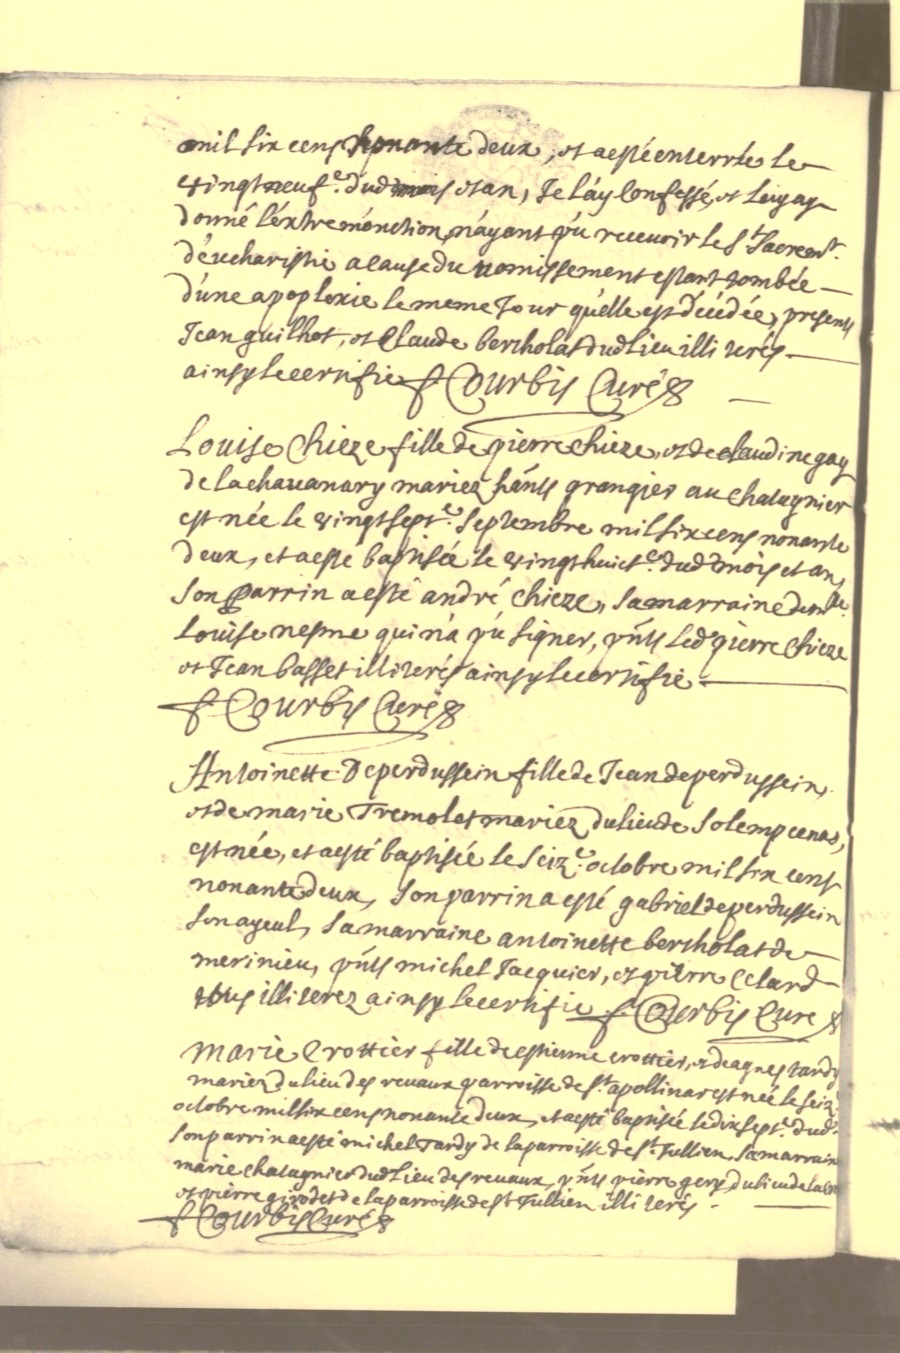 mil six cens nonante deux, et a esté enterrée le
vingt neuf.e dud mois et an, Je l'ay confessé, et luy ay
donné l'extremónction, n'ayant pû recevoir le St Sacremt.
d'eucharistie a cause du vomissement estant tombée
d'une apoplexie le meme Jour qu'elle est décédée, presents
Jean guilhot, et Claude bertholat dud lieu illiterés
ainsy le certifie f Courbis Curé
Louise Chieze fille de pierre chieze, et de claudine gay
de la chavanary mariez hants grangies au chatagnier
est née le vingt sept.e Septembre mil six cens nonante
deux, et a esté baptisée le vingt huict.e dud mois et an,
Son parrin a esté andré chieze, sa marraine demlle.
Louise nesme qui n'a pû signer, pnts led pierre chieze
et Jean basset illiterés ainsy le certifie
f Courbis Curé
Antoinette Deperdussein fille de Jean deperdussein,
et de marie Tremolet mariez du lieu de Solempcenas,
est née, et a esté baptisée le seiz.e octobre mil six cens
nonante deux, son parrin a esté gabriel deperdussein
son ayeul, sa marraine antoinette bertholat de
merinieu, pnts michel Jacquier, et pierre Celard
tous illiterez ainsy le certifie f Courbis Cure
Marie Crottier fille de estienne crottier, et de agnes tardy
mariez du lieu des revaux parroisse de St. apollinar est née le seiz.
octobre mil six cens nonante deux, et a esté baptisée le dix sept.e dud.
son parrin a esté michel Tardy de la parroisse de St Jullien, sa marraine
marie chatagnier dud lieu des revaux, pnts pierre gery du lieu de
et pierre girodet de la parroisse de St Jullien illiterés
f Courbis Curé